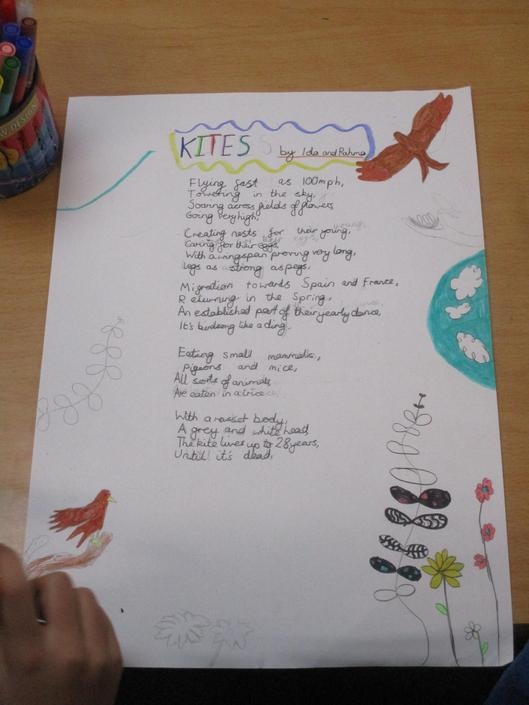 KITES by Ida and Rahma
Flying fast as 100mph,
Towering in the sky,
Soaring across fields of flowers
Going very high,
Creating nests for their young,
Caring for their eggs
With a wingspan proving very long,
Legs as strong as pegs,
Migration towards Spain and France,
Returning in the Spring,
An established part of their yearly dance,
It's like a ding.
Eating small mammals,
pigeons and mice,
All sorts of animals
Are eaten in a trice
With a russet body,
A grey and white head
The kite lives up to 28 years,
Until it's dead,